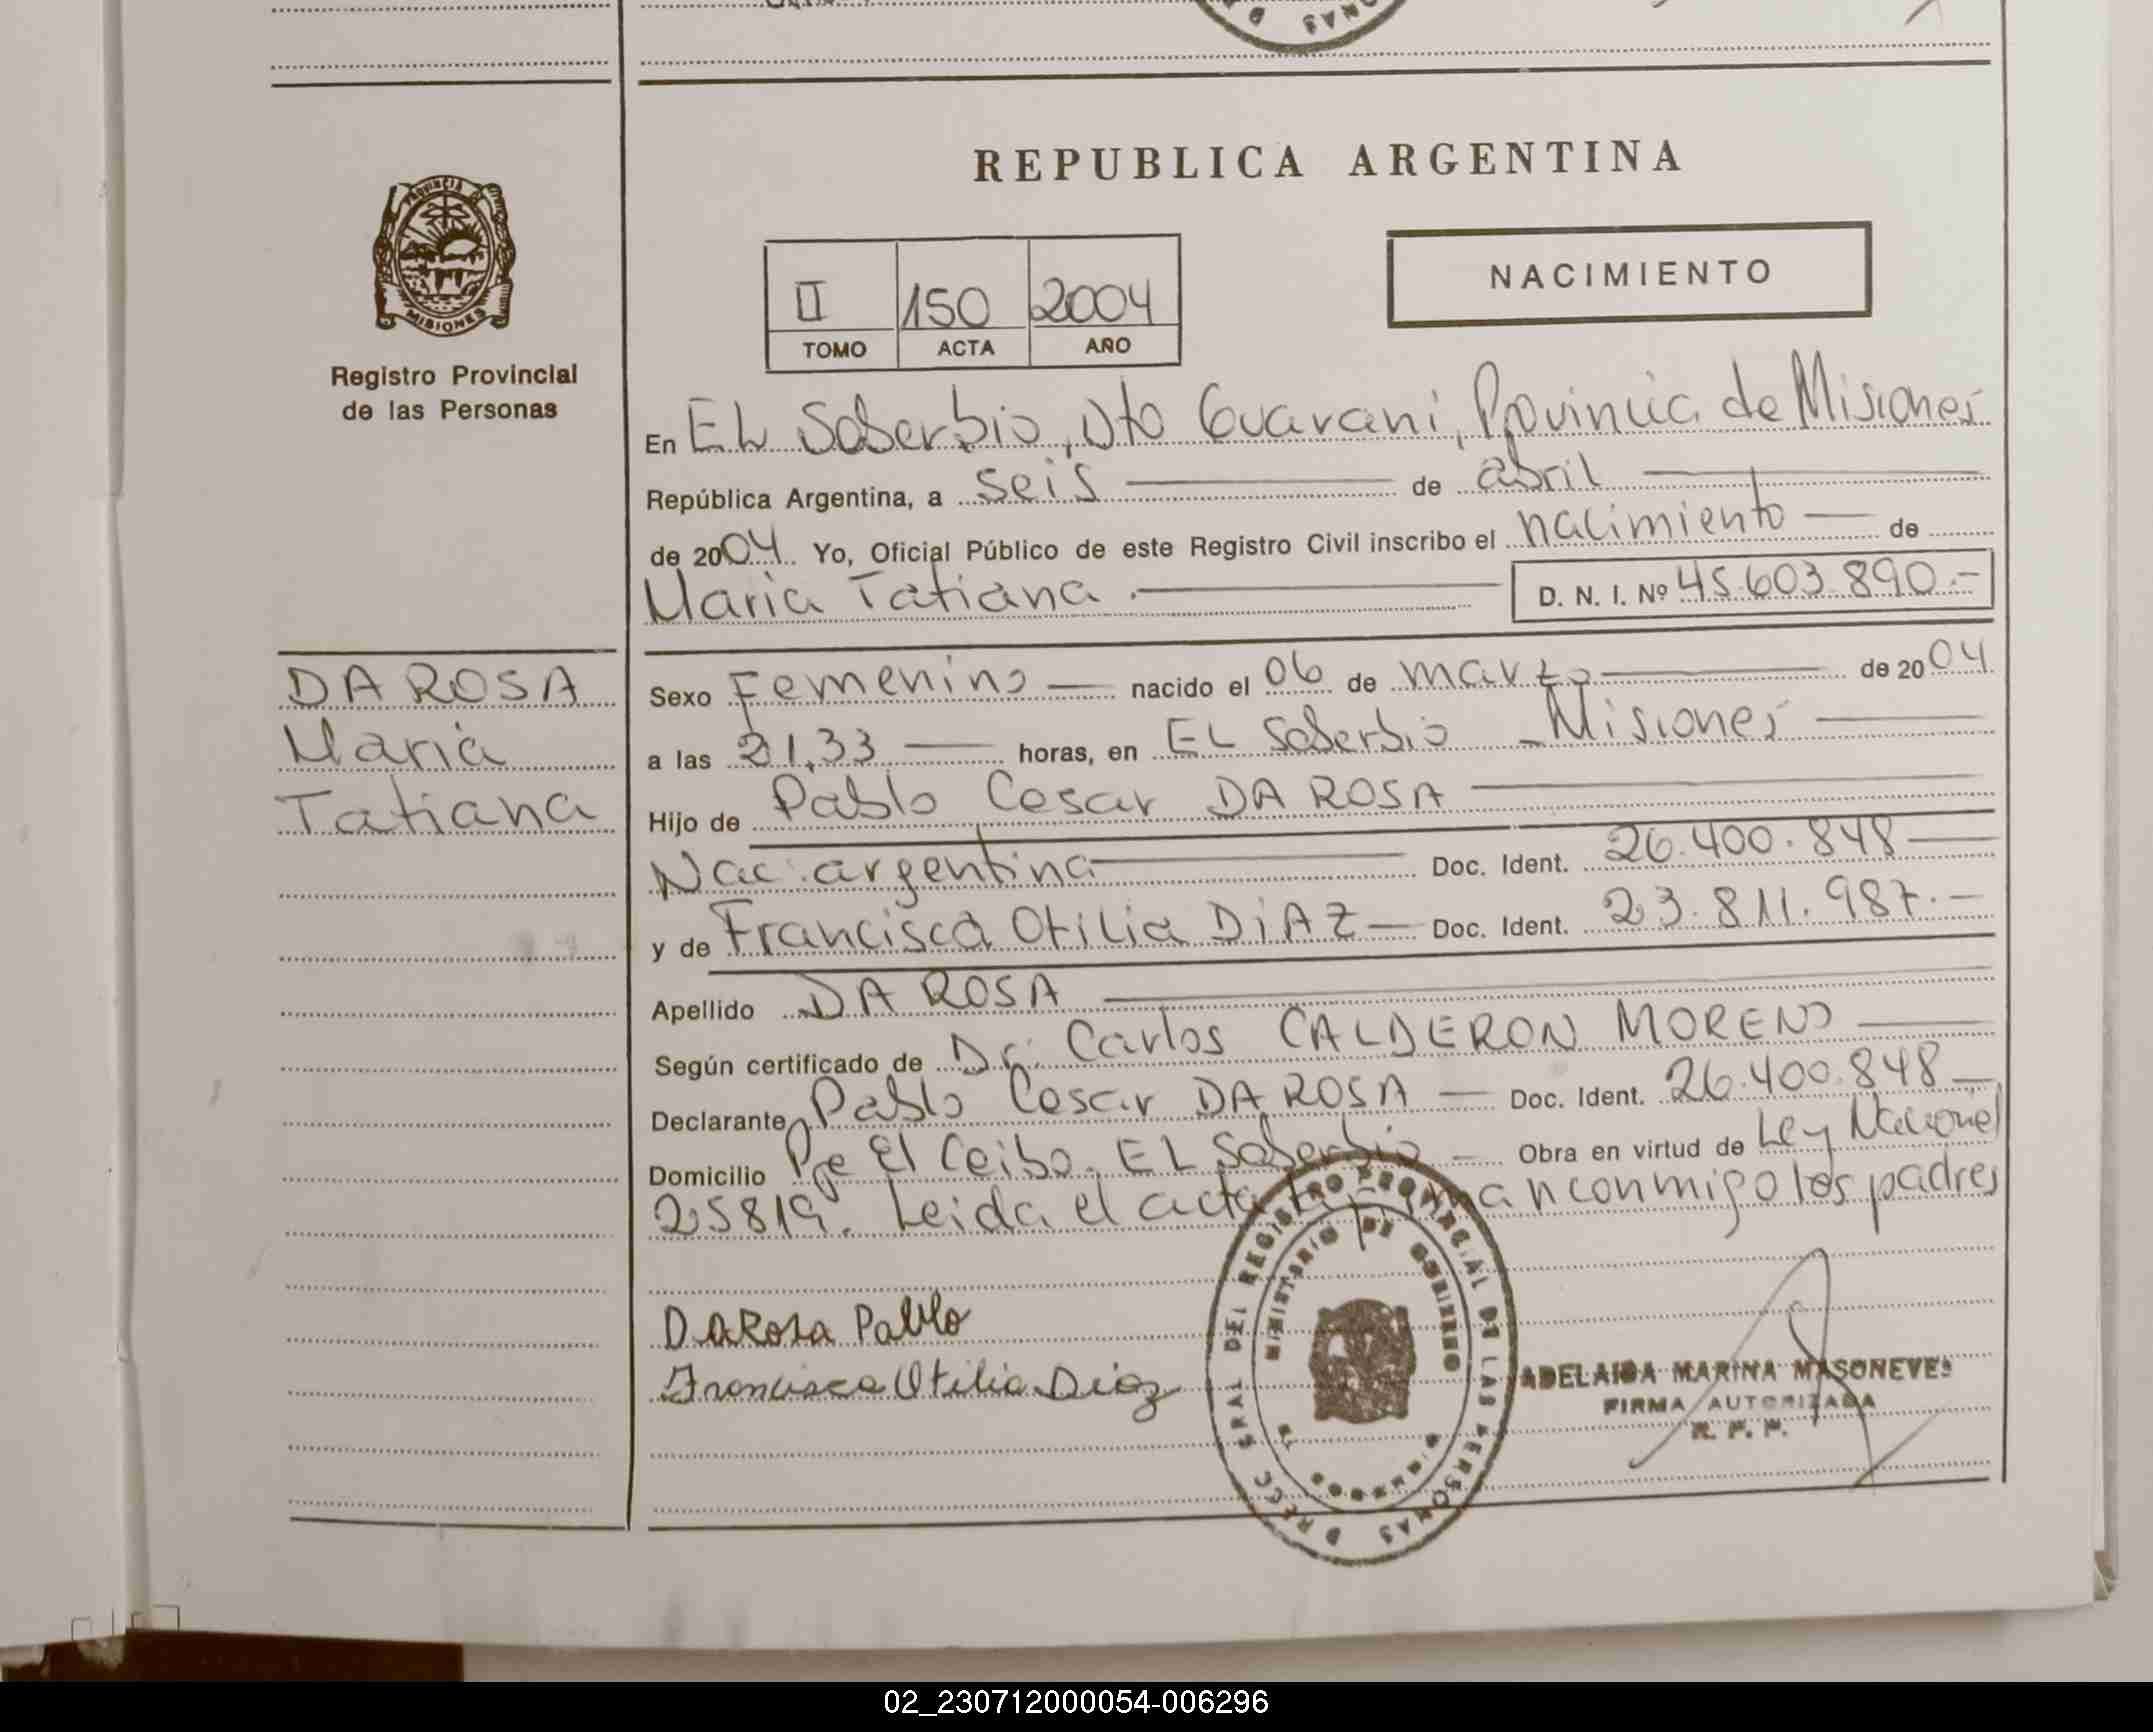 REPUBLICA ARGENTINA
PROVINCIA DE
MISIONES
Registro Provincial
de las Personas
NACIMIENTO
II 150 2004
TOMO ACTA AÑO
En EL Soberbio, Dto Guarani, Provincia de Misiones
República Argentina, a seis de abril
de 2004. Yo, Oficial Público de este Registro Civil inscribo el nacimiento de
Maria Tatiana. D. N. I. Nº 45.603.890.-
DA ROSA
Maria
Tatiana
Sexo Femenino nacido el 06 de marzo de 2004
a las 21,33 horas, en EL Soberbio - Misiones
Hijo de Pablo Cesar DA ROSA
Nac: argentina Doc. Ident. 26.400.848
y de Francisca Otilia DiAZ Doc. Ident. 23.811.987.-
Apellido DA ROSA
Según certificado de Dr. Carlos CALDERON MORENO
Declarante Pablo Cesar DA ROSA Doc. Ident. 26.400.848
Domicilio Pje El Ceibo. EL Soberbio Obra en virtud de Ley Nacional
25819. Leida el acta la firman conmigo los padres
DaRosa Pablo
Francisca Otilia Diaz
DIRECC GRAL DEL REGISTRO PROVINCIAL DE LAS PERSONAS
MINISTERIO DE GOBIERNO
MISIONES
ADELAIDA MARINA MASONEVES
FIRMA AUTORIZADA
R. P. P.
02_230712000054-006296